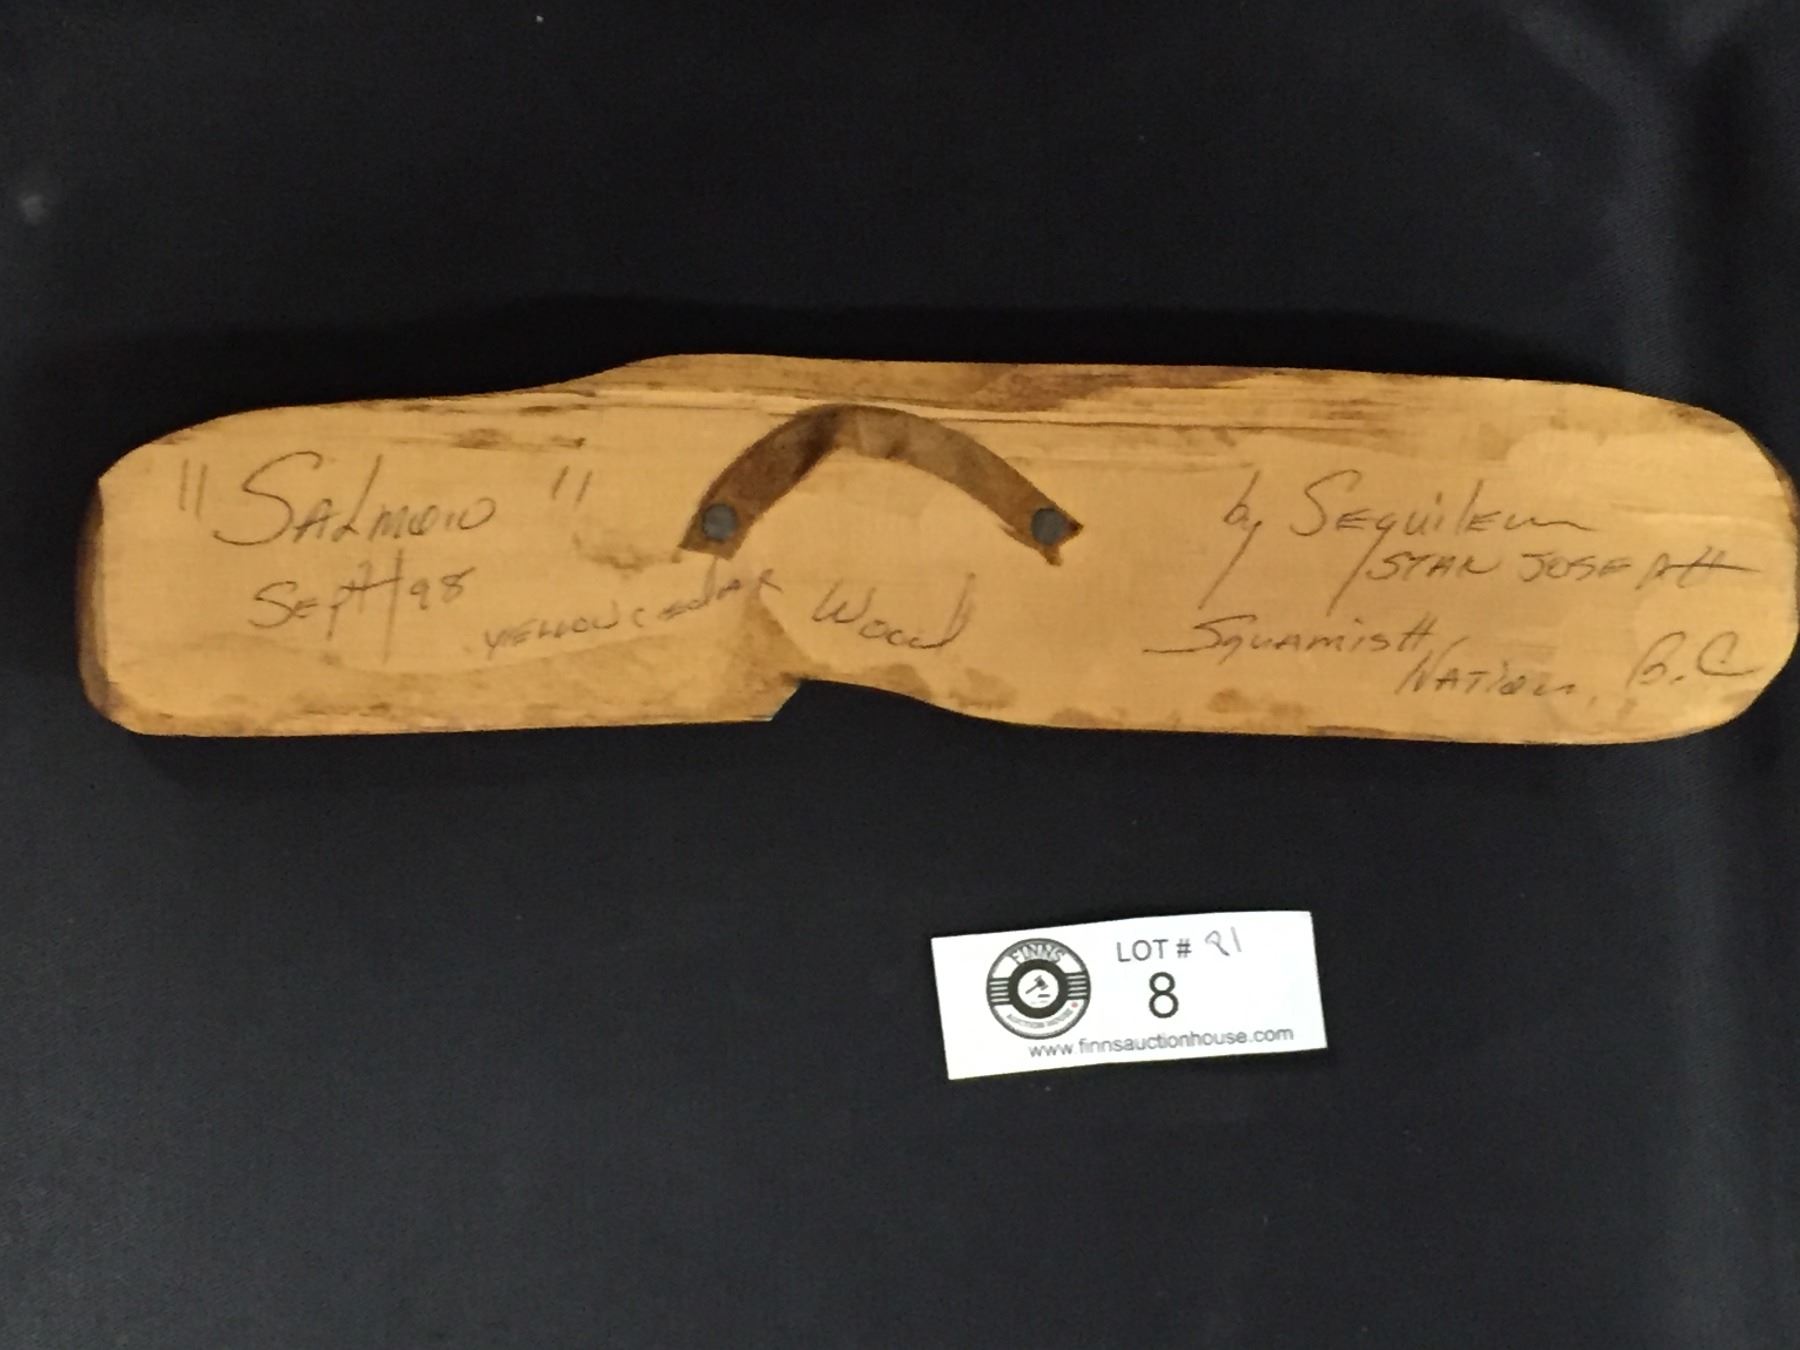 "Salmon"
Sept/98
Yellow Cedar Wood
by Sequilem
Stan Joseph
Squamish
Nation, B.C
FINNS
AUCTION HOUSE
LOT # 91
8
www.finnsauctionhouse.com